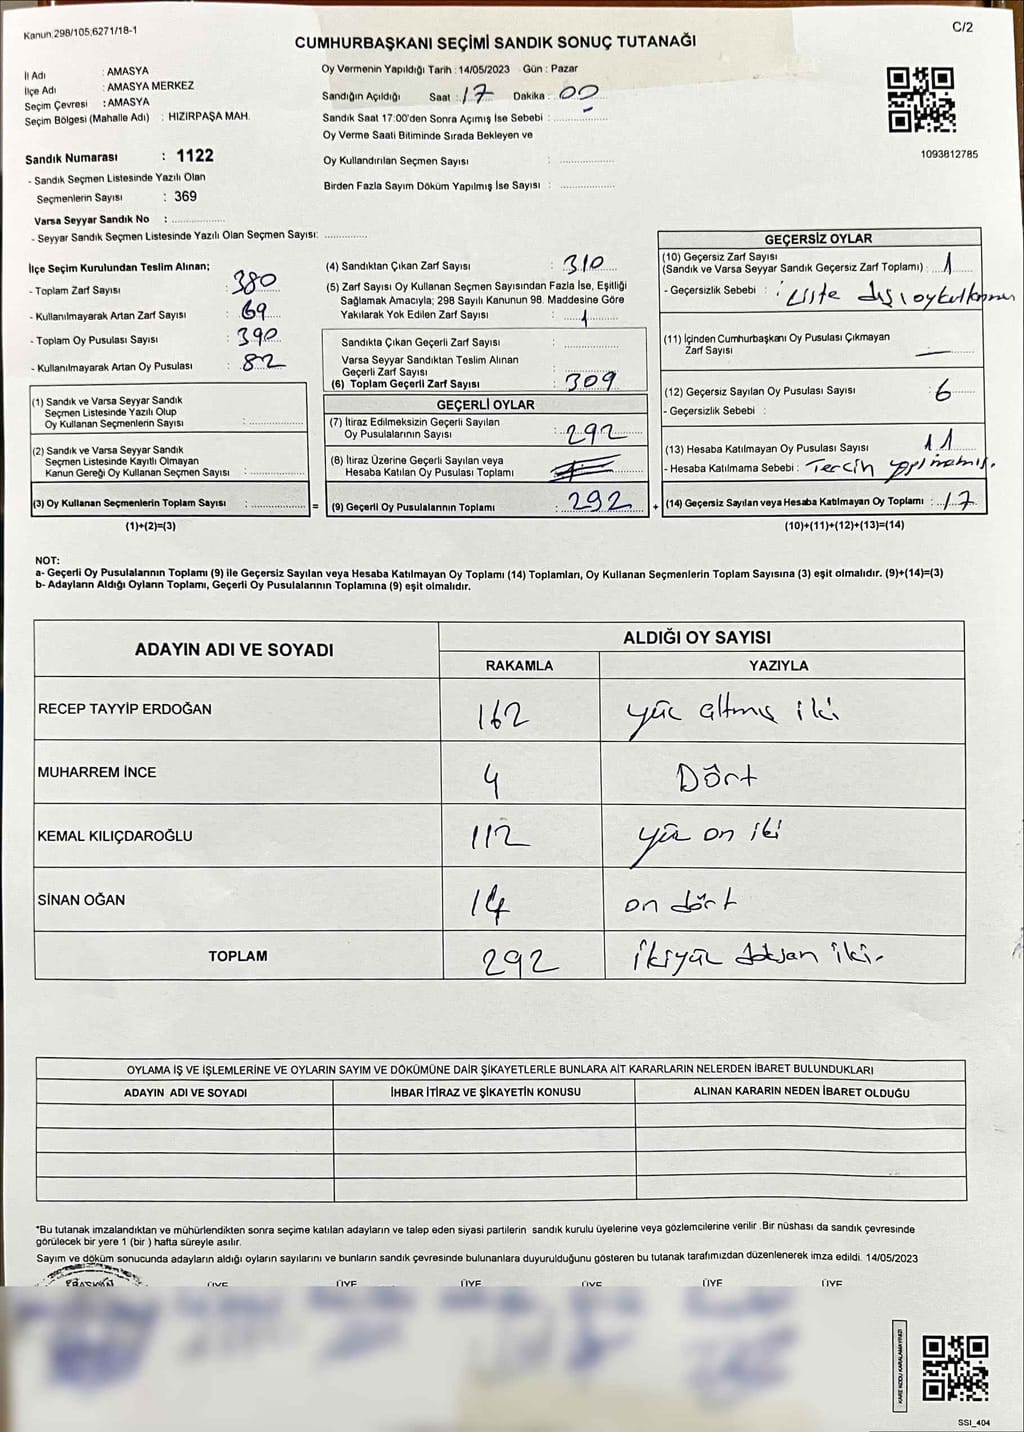 Kanun.298/105,6271/18-1
C/2
CUMHURBAŞKANI SEÇİMİ SANDIK SONUÇ TUTANAĞI
İl Adı : AMASYA
İlçe Adı : AMASYA MERKEZ
Seçim Çevresi : AMASYA
Seçim Bölgesi (Mahalle Adı) : HIZIRPAŞA MAH.
Oy Vermenin Yapıldığı Tarih : 14/05/2023 Gün : Pazar
Sandığın Açıldığı Saat : 17 Dakika : 00
Sandık Saat 17:00'den Sonra Açımış İse Sebebi :
Oy Verme Saati Bitiminde Sırada Bekleyen ve
Oy Kullandırılan Seçmen Sayısı :
Birden Fazla Sayım Döküm Yapılmış İse Sayısı :
1093812785
Sandık Numarası : 1122
- Sandık Seçmen Listesinde Yazılı Olan
Seçmenlerin Sayısı : 369
Varsa Seyyar Sandık No :
- Seyyar Sandık Seçmen Listesinde Yazılı Olan Seçmen Sayısı:
İlçe Seçim Kurulundan Teslim Alınan;
- Toplam Zarf Sayısı : 380
- Kullanılmayarak Artan Zarf Sayısı : 69
- Toplam Oy Pusulası Sayısı : 390
- Kullanılmayarak Artan Oy Pusulası : 82
(1) Sandık ve Varsa Seyyar Sandık
Seçmen Listesinde Yazılı Olup
Oy Kullanan Seçmenlerin Sayısı :
(2) Sandık ve Varsa Seyyar Sandık
Seçmen Listesinde Kayıtlı Olmayan
Kanun Gereği Oy Kullanan Seçmen Sayısı :
(3) Oy Kullanan Seçmenlerin Toplam Sayısı : =
(1)+(2)=(3)
(4) Sandıktan Çıkan Zarf Sayısı : 310
(5) Zarf Sayısı Oy Kullanan Seçmen Sayısından Fazla İse, Eşitliği
Sağlamak Amacıyla; 298 Sayılı Kanunun 98. Maddesine Göre
Yakılarak Yok Edilen Zarf Sayısı : 1
Sandıkta Çıkan Geçerli Zarf Sayısı :
Varsa Seyyar Sandıktan Teslim Alınan
Geçerli Zarf Sayısı :
(6) Toplam Geçerli Zarf Sayısı : 309
GEÇERLİ OYLAR
(7) İtiraz Edilmeksizin Geçerli Sayılan
Oy Pusulalarının Sayısı : 292
(8) İtiraz Üzerine Geçerli Sayılan veya
Hesaba Katılan Oy Pusulası Toplamı :
(9) Geçerli Oy Pusulalarının Toplamı : 292 +
GEÇERSİZ OYLAR
(10) Geçersiz Zarf Sayısı
(Sandık ve Varsa Seyyar Sandık Geçersiz Zarf Toplamı) : 1
- Geçersizlik Sebebi : Liste dışı oykullanma
(11) İçinden Cumhurbaşkanı Oy Pusulası Çıkmayan
Zarf Sayısı : —
(12) Geçersiz Sayılan Oy Pusulası Sayısı : 6
- Geçersizlik Sebebi :
(13) Hesaba Katılmayan Oy Pusulası Sayısı : 11
- Hesaba Katılmama Sebebi : Tercih yapılmamış.
(14) Geçersiz Sayılan veya Hesaba Katılmayan Oy Toplamı : 17
(10)+(11)+(12)+(13)=(14)
NOT:
a- Geçerli Oy Pusulalarının Toplamı (9) ile Geçersiz Sayılan veya Hesaba Katılmayan Oy Toplamı (14) Toplamları, Oy Kullanan Seçmenlerin Toplam Sayısına (3) eşit olmalıdır. (9)+(14)=(3)
b- Adayların Aldığı Oyların Toplamı, Geçerli Oy Pusulalarının Toplamına (9) eşit olmalıdır.
ADAYIN ADI VE SOYADI
ALDIĞI OY SAYISI
RAKAMLA YAZIYLA
RECEP TAYYİP ERDOĞAN 162 yüz altmış iki
MUHARREM İNCE 4 Dört
KEMAL KILIÇDAROĞLU 112 yüz on iki
SİNAN OĞAN 14 on dört
TOPLAM 292 ikiyüz doksan iki.
OYLAMA İŞ VE İŞLEMLERİNE VE OYLARIN SAYIM VE DÖKÜMÜNE DAİR ŞİKAYETLERLE BUNLARA AİT KARARLARIN NELERDEN İBARET BULUNDUKLARI
ADAYIN ADI VE SOYADI İHBAR İTİRAZ VE ŞİKAYETİN KONUSU ALINAN KARARIN NEDEN İBARET OLDUĞU
*Bu tutanak imzalandıktan ve mühürlendikten sonra seçime katılan adayların ve talep eden siyasi partilerin sandık kurulu üyelerine veya gözlemcilerine verilir. Bir nüshası da sandık çevresinde
görülecek bir yere 1 (bir) hafta süreyle asılır.
Sayım ve döküm sonucunda adayların aldığı oyların sayılarını ve bunların sandık çevresinde bulunanlara duyurulduğunu gösteren bu tutanak tarafımızdan düzenlenerek imza edildi. 14/05/2023
BAŞKAN ÜYE ÜYE ÜYE ÜYE ÜYE ÜYE
KARE KODU KARALAMAYINIZ!
SSI_404